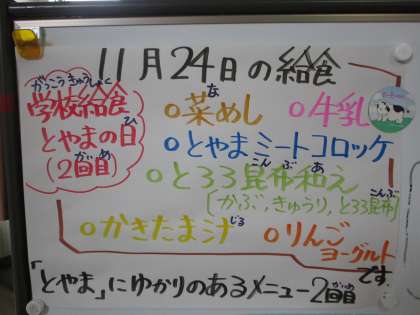 11月24日の給食
がっこうきゅうしょく
学校給食
とやまの日
ひ
(2回目)
かいめ
○菜めし
な
○牛乳
○とやまミートコロッケ
○とろろ昆布和え
こんぶあ
[かぶ,きゅうり,とろろ昆布]
こんぶ
○かきたま汁
じる
○りんご
ヨーグルト
です。
「とやま」にゆかりのあるメニュー2回目
かいめ